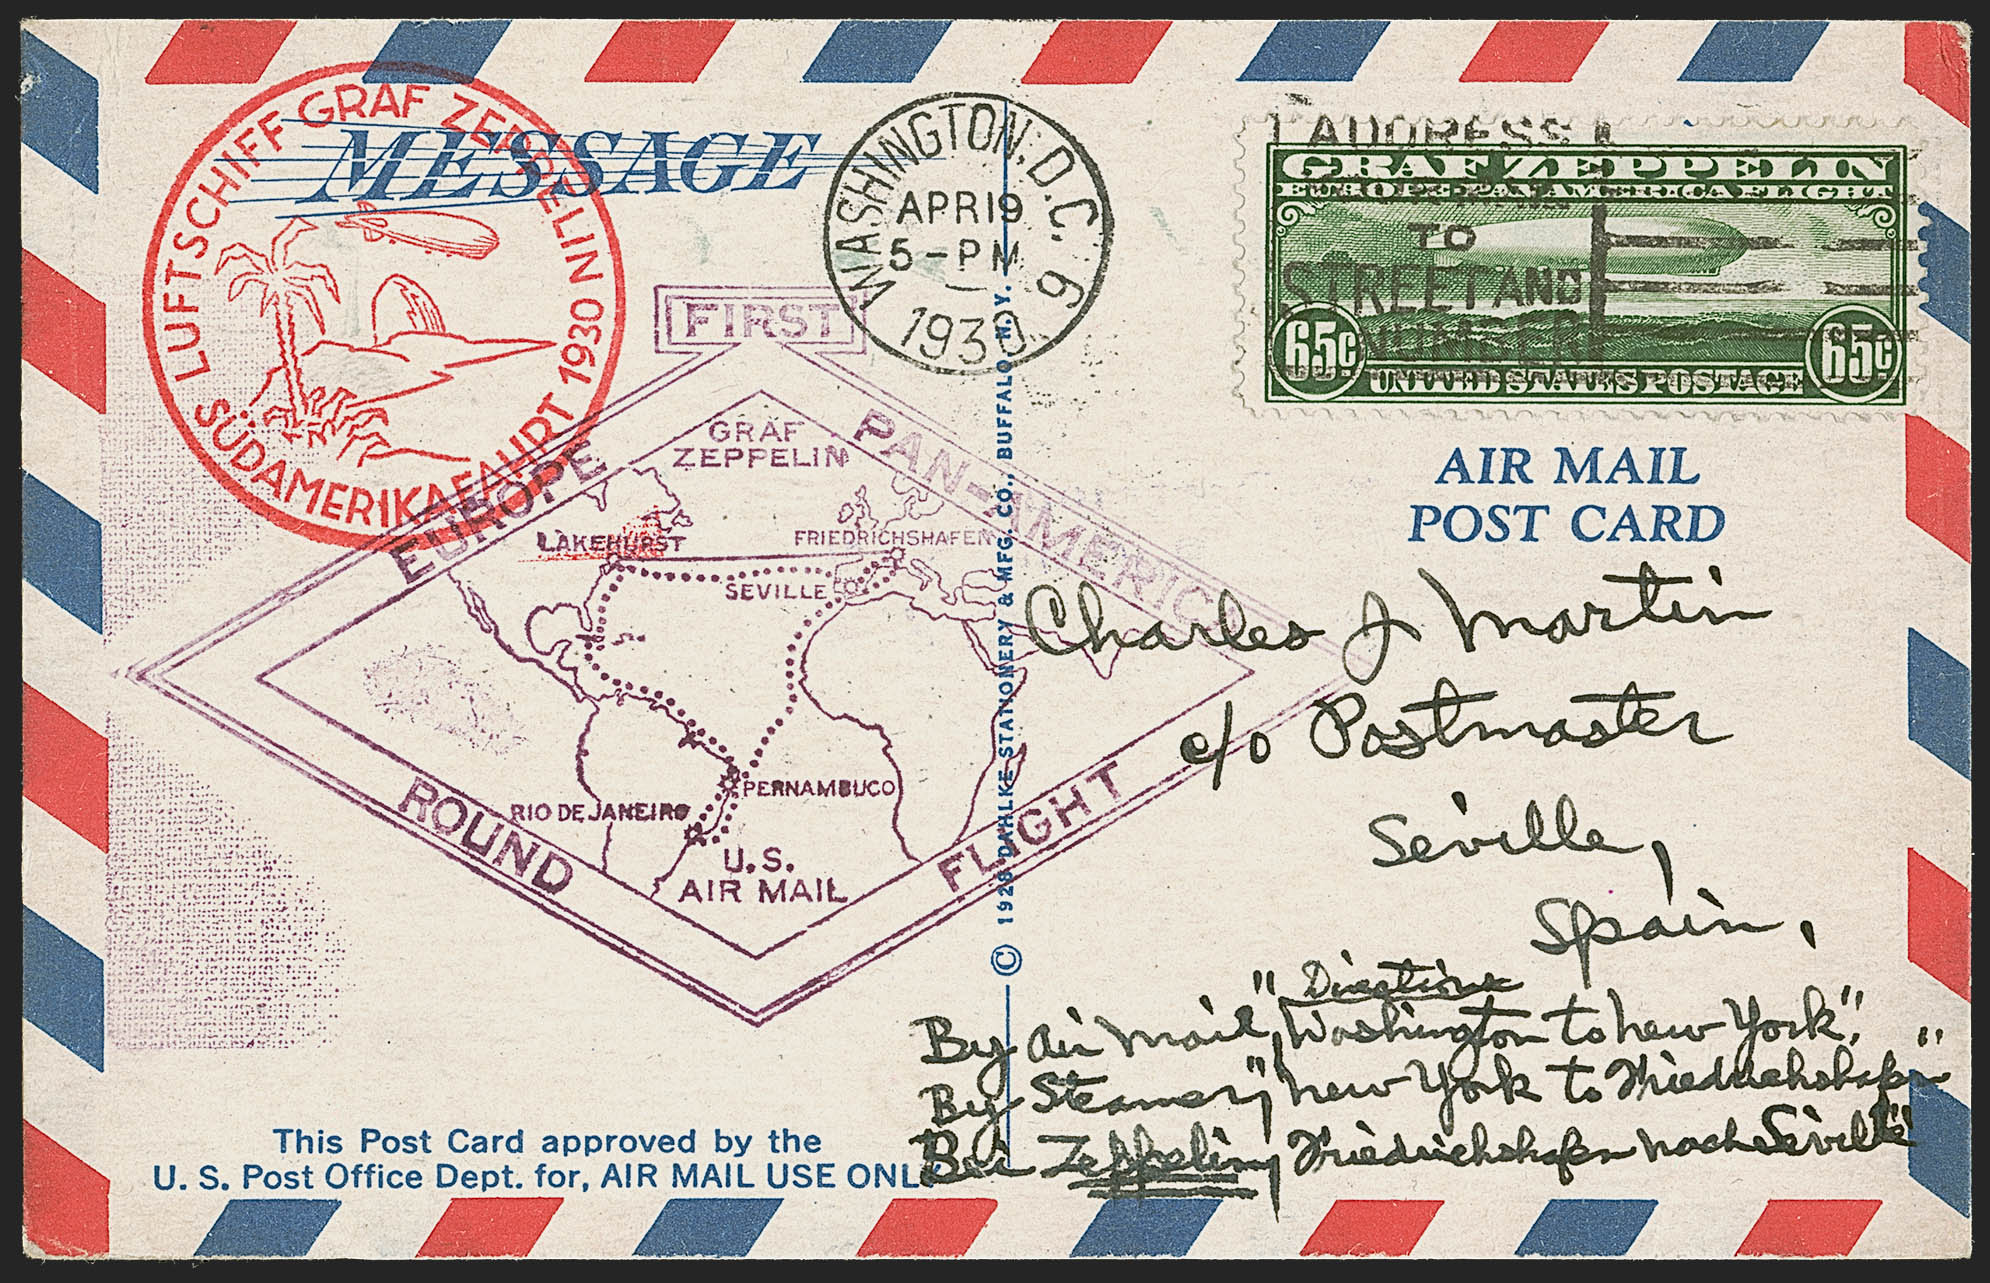 LUFTSCHIFF GRAF ZEPPELIN 1930
SÜDAMERIKAFAHRT
MESSAGE
WASHINGTON, D.C. 6
APR 19
5-PM
1930
ADDRESS
TO
STREET AND
NUMBER
GRAF ZEPPELIN
EUROPE-PAN AMERICA FLIGHT
65¢ 65¢
UNITED STATES POSTAGE
AIR MAIL
POST CARD
FIRST
EUROPE
PAN-AMERICA
ROUND
FLIGHT
GRAF
ZEPPELIN
LAKEHURST
FRIEDRICHSHAFEN
SEVILLE
PERNAMBUCO
RIO DE JANEIRO
U.S.
AIR MAIL
© 1928 DAHLKE STATIONERY & MFG. CO., BUFFALO, N.Y.
Charles J Martin
c/o Postmaster
Seville,
Spain,
Directions
By Air Mail, "Washington to New York."
By Steamer, "New York to Friedrichshafen"
Bei Zeppelin, Friedrichshafen nach Seville"
This Post Card approved by the
U. S. Post Office Dept. for, AIR MAIL USE ONLY